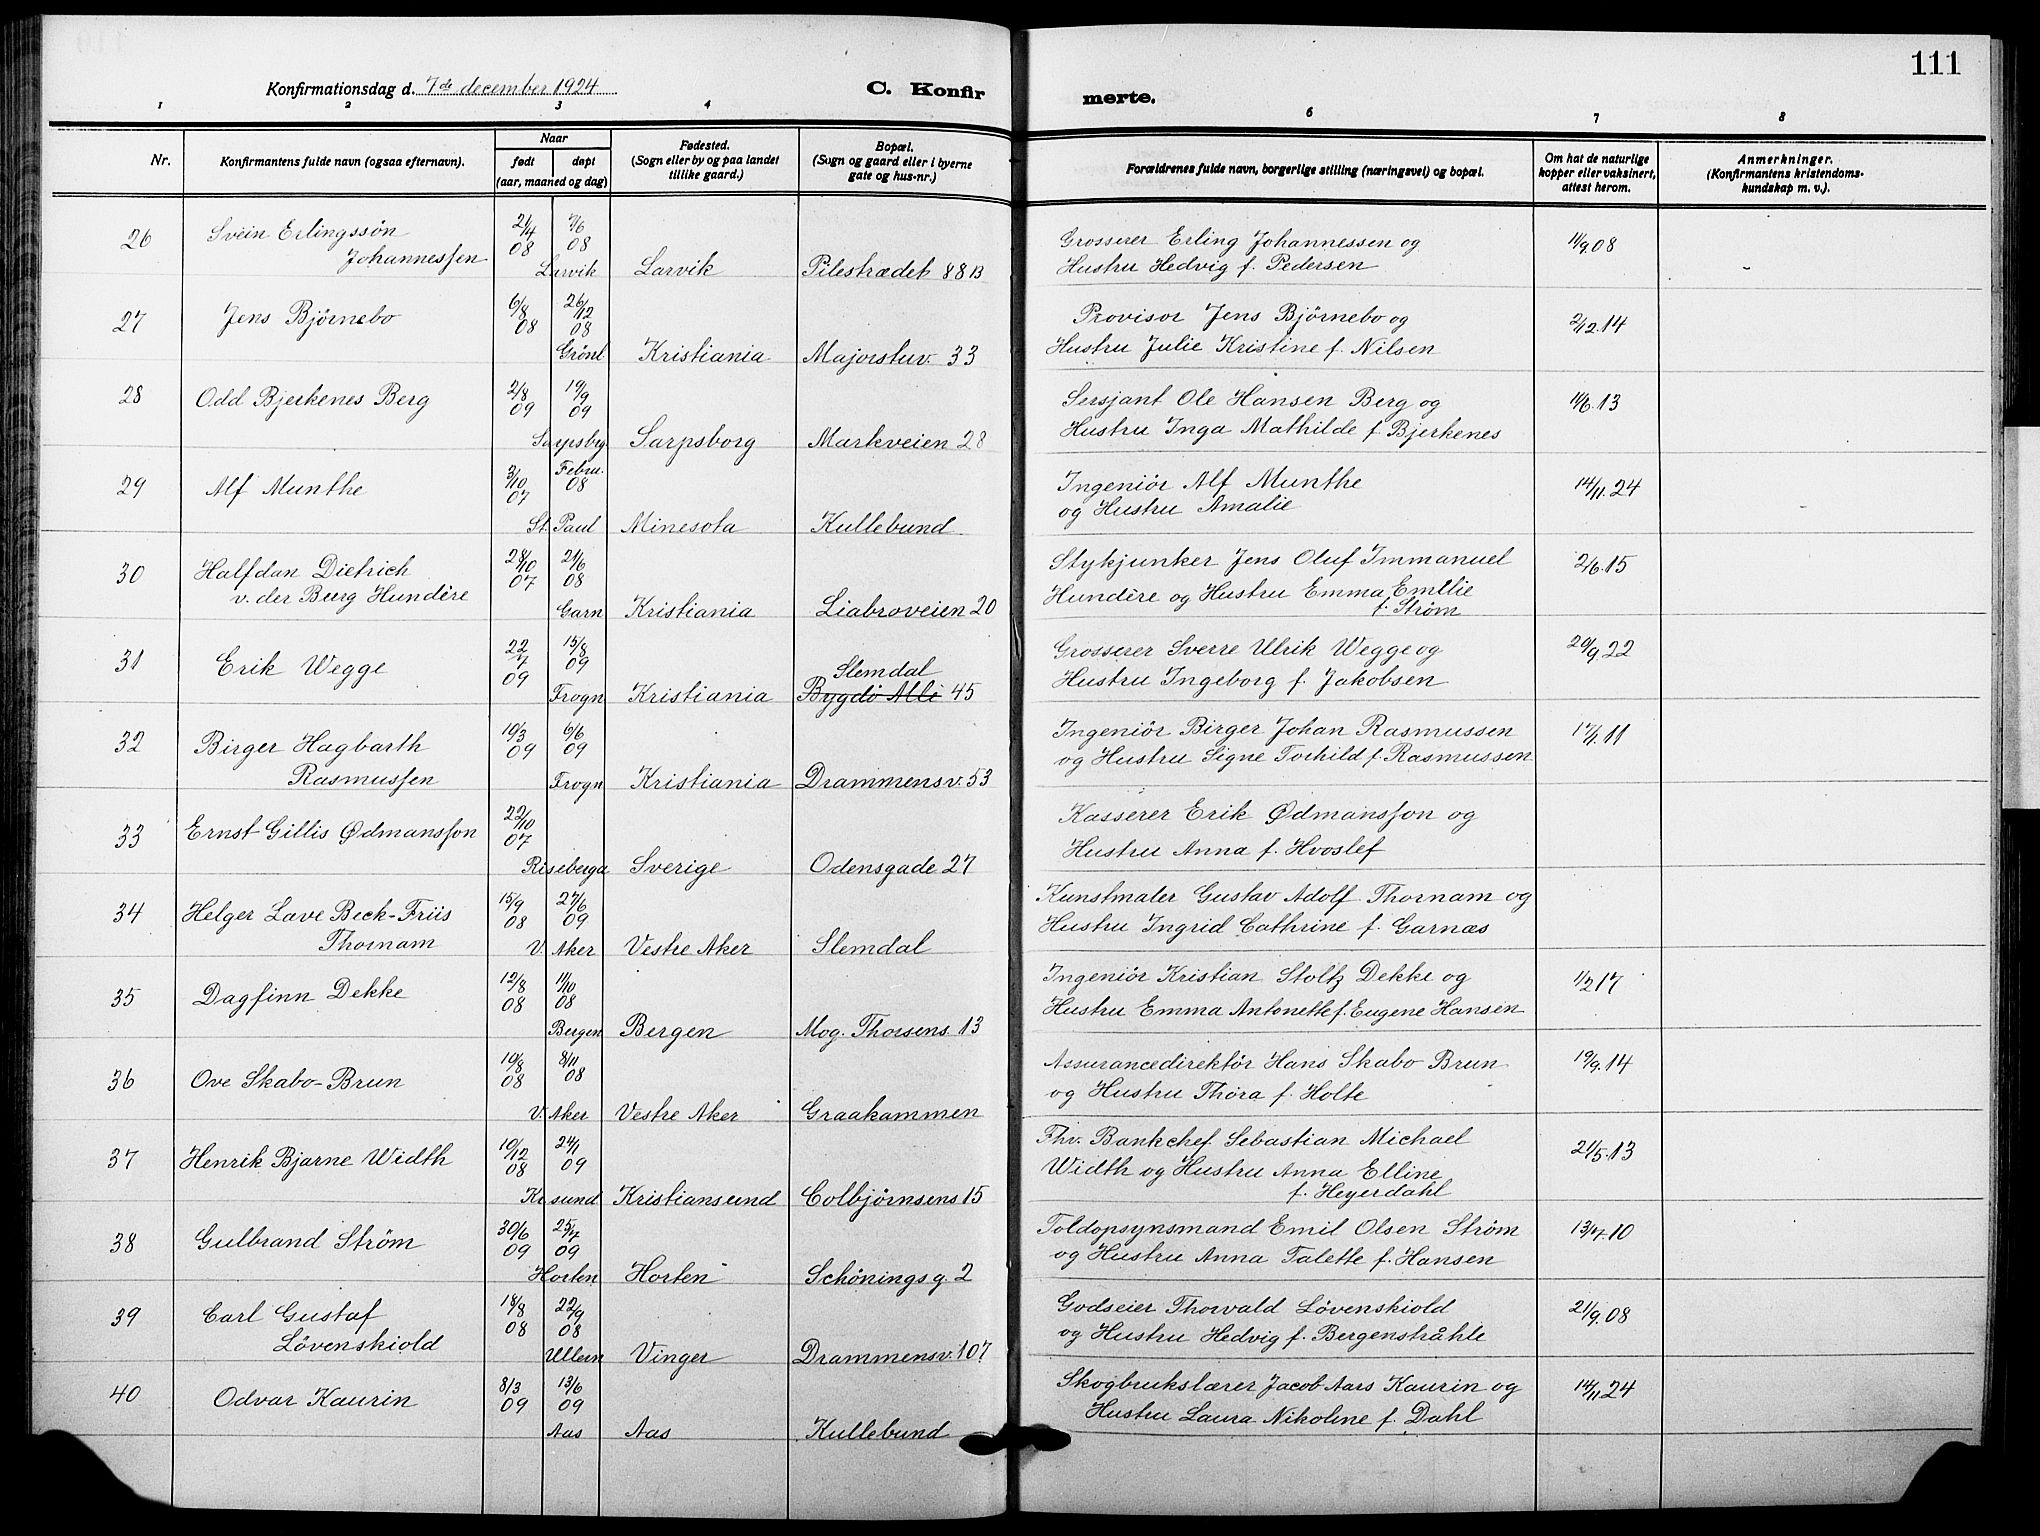 111
Konfirmationsdag d. 7de december 1924
C. Konfirmerte.
1 2 3 4 6 7 8
Nr.
Konfirmantens fulde navn (ogsaa efternavn).
Naar
født døpt
(aar, maaned og dag)
Fødested.
(Sogn eller by og paa landet
tillike gaard.)
Bopæl.
(Sogn og gaard eller i byerne
gate og hus-nr.)
Forældrenes fulde navn, borgerlige stilling (næringsvei) og bopæl.
Om hat de naturlige
kopper eller vaksinert,
attest herom.
Anmerkninger.
(Konfirmantens kristendoms-
kundskap m. v.).
26 Svein Erlingssøn 21/4 7/6 Grosserer Erling Johannessen og 11/9 08
Johannessen 08 08 Larvik Larvik Pilestrædet 88 B Hustru Hedvig f. Pedersen
27 Jens Bjørnebo 6/8 08 26/12 08 Provisor Jens Bjørnebo og 2/12.14
Grønl. Kristiania Majorstuv. 33 Hustru Julie Kristine f. Nilsen
28 Odd Bjerkenes Berg 2/8 09 19/9 09 Sersjant Ole Hansen Berg og 11/6.13
Sarpsbg. Sarpsborg Markveien 28 Hustru Inga Mathilde f. Bjerkenes
29 Alf Munthe 3/10 07 Febru. 08 Ingeniör Alf Munthe 14/11.24
St. Paul Minesota Kullebund og Hustru Amalie
30 Halfdan Dietrich 28/10 07 21/6 08 Stykjunker Jens Oluf Immanuel 2/6.15
v. der Burg Hundère Garn Kristiania Liabroveien 20 Hundère og Hustru Emma Emilie
f. Strøm
31 Erik Wegge 22/7 09 15/8 09 Slemdal Grosserer Sverre Ulrik Wegge og 20/9.22
Frogn Kristiania Bygdö Allé 45 Hustru Ingeborg f. Jakobsen
32 Birger Hagbarth 10/3 09 6/6 09 Ingeniör Birger Johan Rasmussen
Rasmussen Frogn Kristiania Drammensv. 53 og Hustru Signe Torhild f. Rasmussen
33 Ernst Gillis Ødmansson 22/10 07 Kasserer Erik Ødmansson og
Riseberga Sverige Odensgade 27 Hustru Anna f. Hvoslef
34 Helger Lave Beck-Friis 15/9 08 27/6 09 Kunstmaler Gustav Adolf Thornam og
Thornam V. Aker Vestre Aker Slemdal Hustru Ingrid Cathrine f. Garnæs
35 Dagfinn Dekke 12/8 08 11/10 08 Ingeniör Kristian Stoltz Dekke og 1/2 17
Bergen Bergen Mog. Thorsens. 13 Hustru Emma Antonette f. Eugene Hansen
36 Ove Skabo-Brun 10/8 08 8/11 08 Assurancedirektör Hans Skabo Brun 19/9.14
V. Aker Vestre Aker Graakammen og Hustru Thora f. Holte
37 Henrik Bjarne Width 10/12 08 24/1 09 Fhv. Bankchef Sebastian Michael 21/5.13
Kr.sund Kristiansund Colbjørnsens 15 Width og Hustru Anna Elline
f. Heyerdahl
38 Gulbrand Ström 30/6 09 25/7 09 Toldopsynsmand Emil Olsen Ström 13/4.10
Horten Horten Schönings g. 2 og Hustru Anna Talette f. Hansen
39 Carl Gustaf 18/8 08 22/9 08 Godseier Thorvald Lövenskiold 21/9.08
Lövenskiold Ullern Vinger Drammensv. 107 og Hustru Hedvig f. Bergenstråhle
40 Odvar Kaurin 8/3 09 13/6 09 Skogbrukslærer Jacob Aars Kaurin og 14/11 24
Aas Aas Kullebund Hustru Laura Nikoline f. Dahl